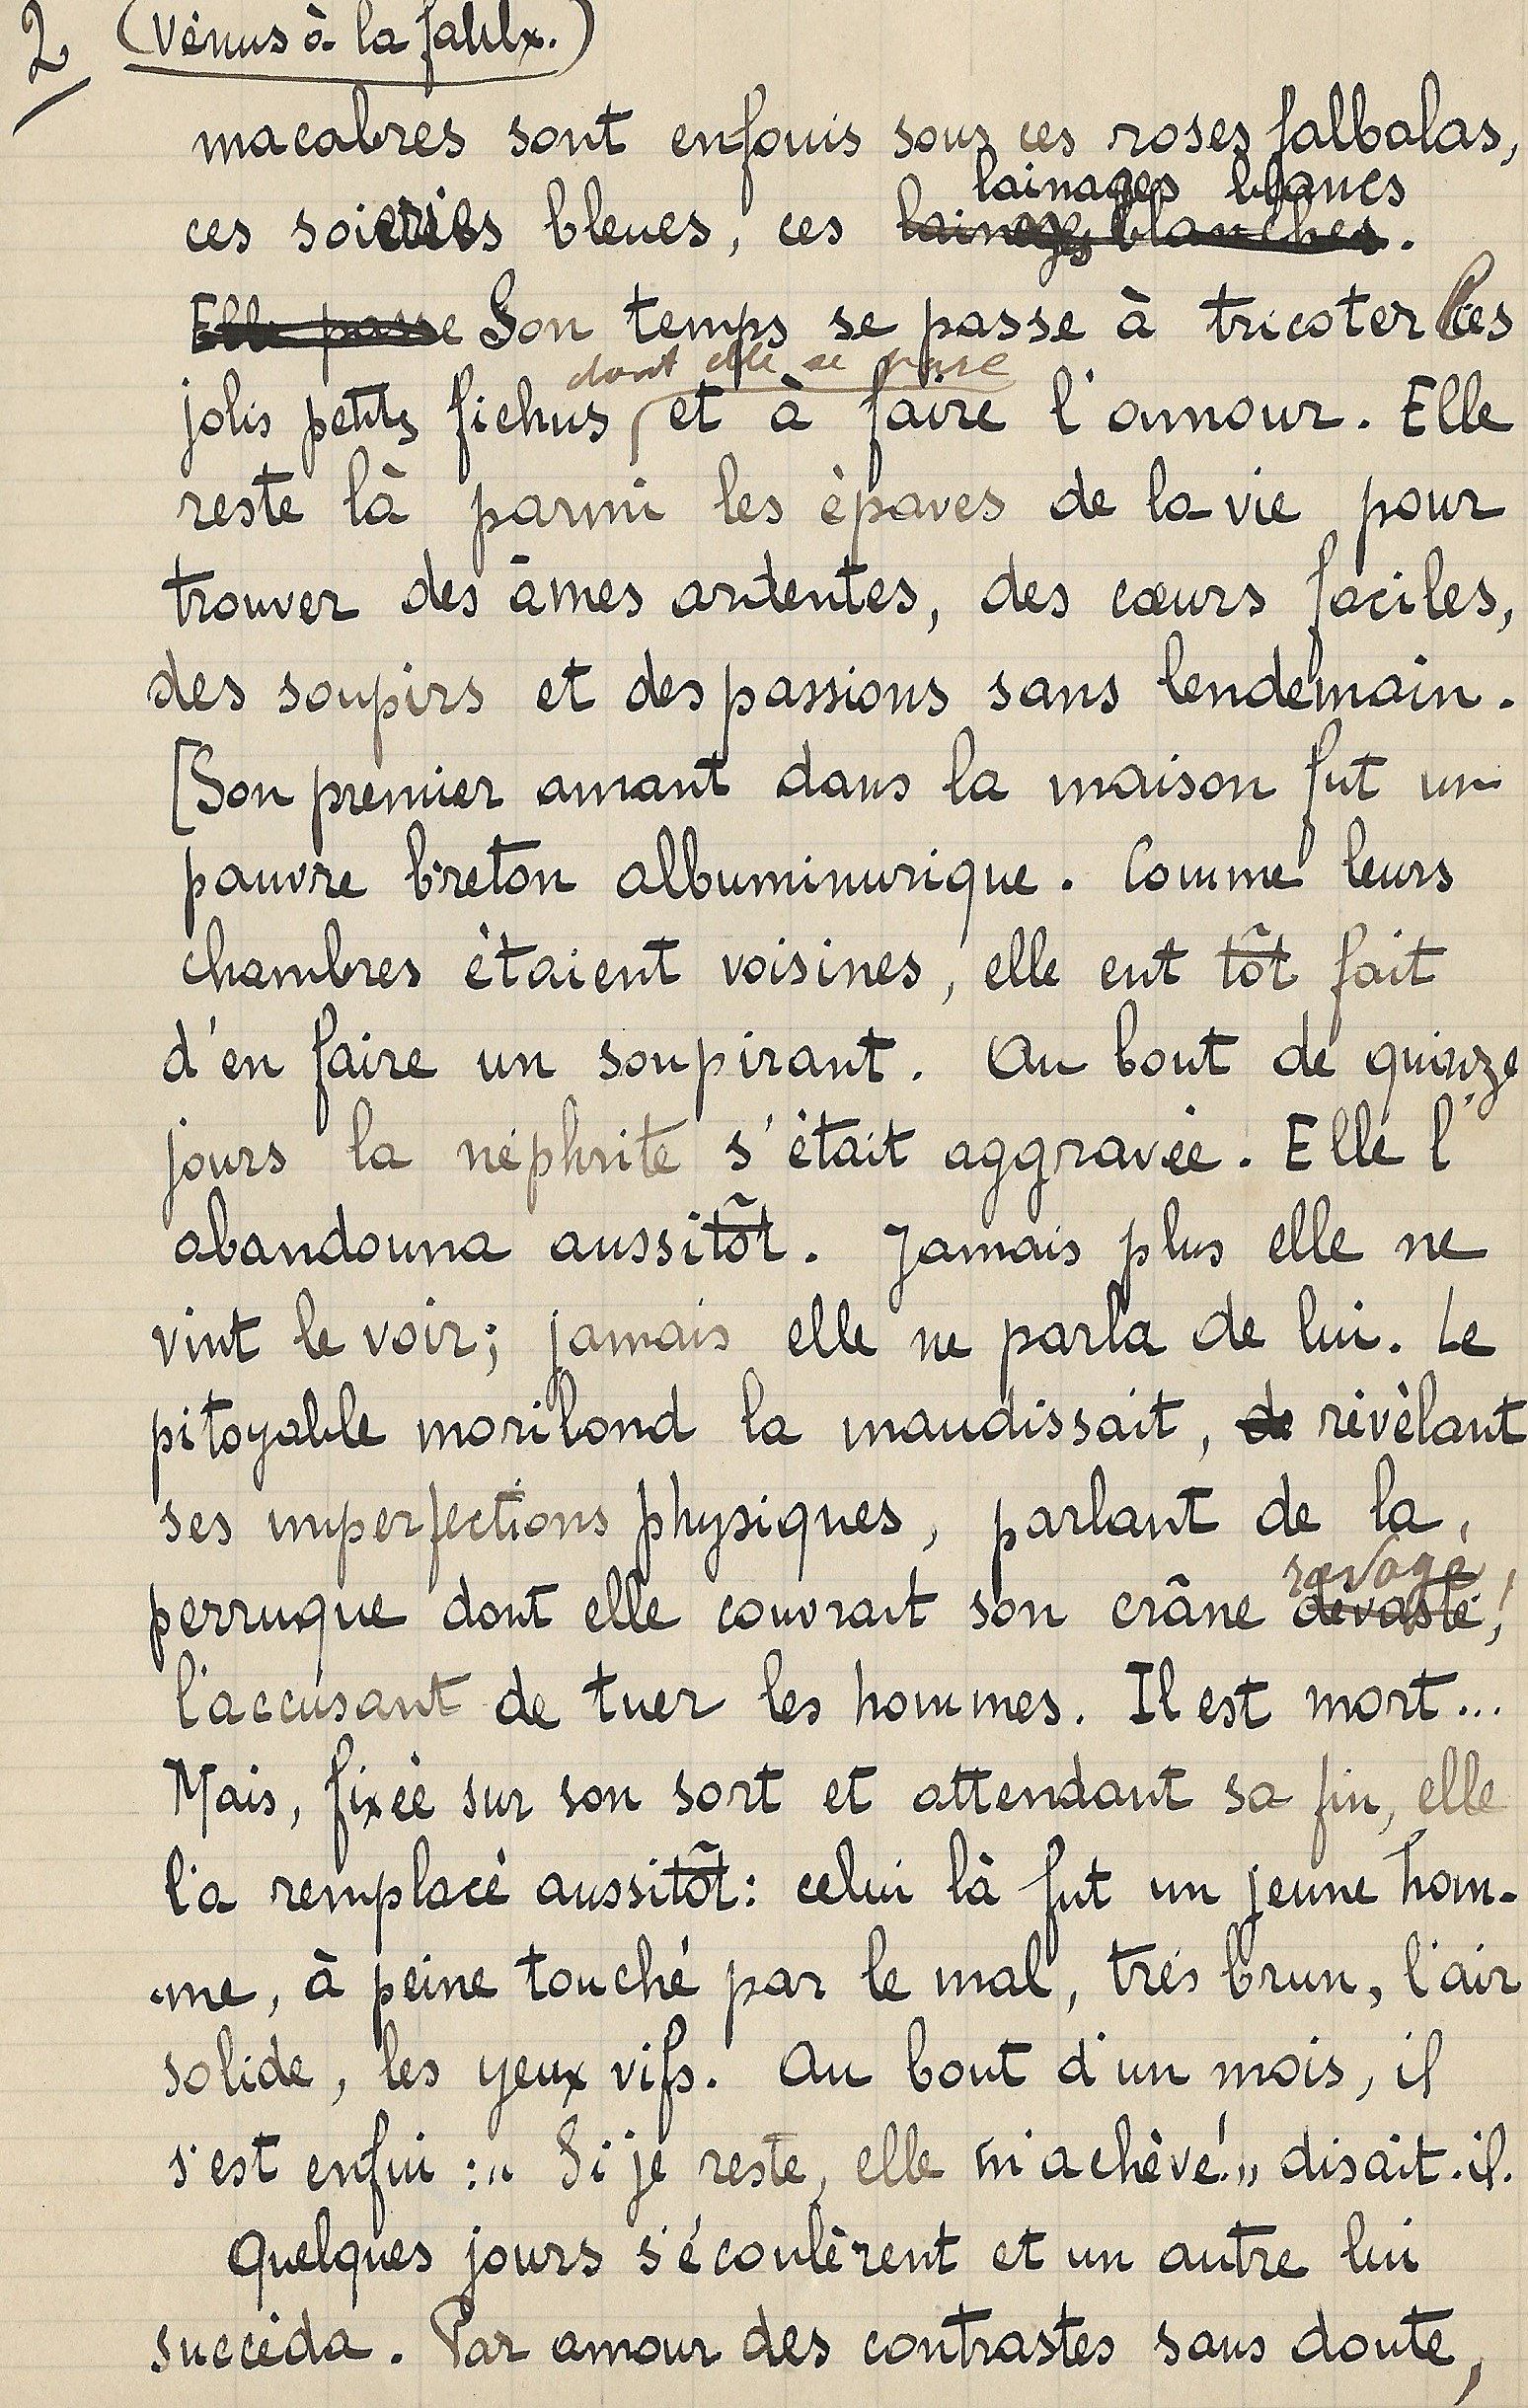 2 (Vénus à la faulx.)
macabres sont enfouis sous ces roses falbalas,
lainages blancs
ces soieries bleues, ces lainages blanches.
Elle passe Son temps se passe à tricoter les
dont elle se pare
jolis petits fichus et à faire l'amour. Elle
reste là parmi les épaves de la vie pour
trouver des âmes ardentes, des cœurs faciles,
des soupirs et des passions sans lendemain.
[Son premier amant dans la maison fut un
pauvre breton albuminurique. Comme leurs
chambres étaient voisines, elle eut tôt fait
d'en faire un soupirant. Au bout de quinze
jours la néphrite s'était aggravée. Elle l'
abandonna aussitôt. Jamais plus elle ne
vint le voir; jamais elle ne parla de lui. Le
pitoyable moribond la maudissait, de révélant
ses imperfections physiques, parlant de la
ravagé,
perruque dont elle couvrait son crâne dévasté,
l'accusant de tuer les hommes. Il est mort...
Mais, fixée sur son sort et attendant sa fin, elle
l'a remplacé aussitôt: celui là fut un jeune hom-
-me, à peine touché par le mal, très brun, l'air
solide, les yeux vifs. Au bout d'un mois, il
s'est enfui: "Si je reste, elle m'achève!" disait-il.
Quelques jours s'écoulèrent et un autre lui
succéda. Par amour des contrastes sans doute,